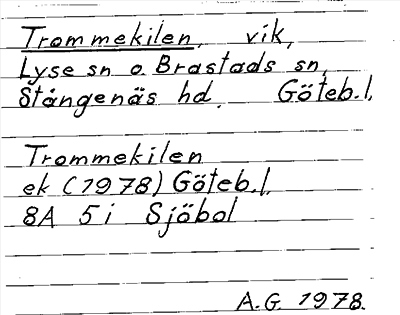 Trommekilen, vik,
Lyse sn o. Brastads sn,
Stångenäs hd. Göteb.l.
Trommekilen
ek (1978) Göteb.l.
8A 5i Sjöbol
A.G. 1978.